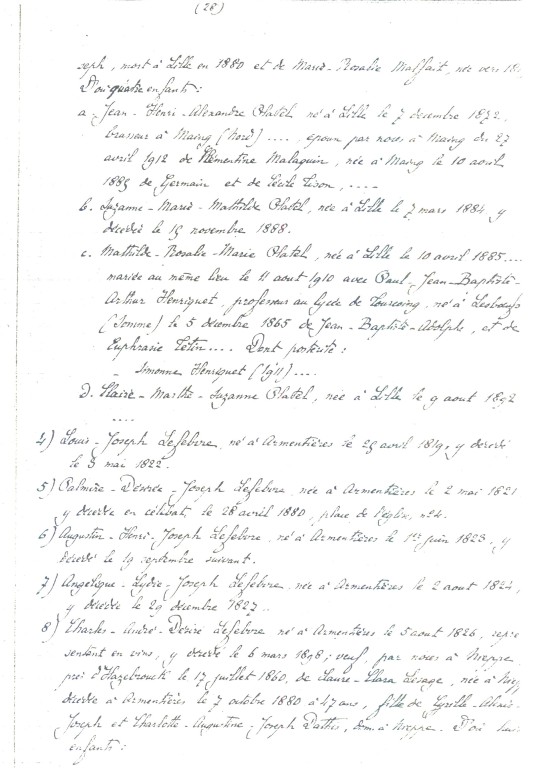 (28)
seph, mort à Lille en 1880 et de Marie-Rosalie Malfait, née vers 18
D'où quatre enfants :
a. Jean-Henri-Alexandre Platel né à Lille le 7 décembre 1872.
brasseur à Maing (Nord) ...., époux par noces à Maing du 27
avril 1912 de Clémentine Malaquin, née à Maing le 10 avril
1885 de Germain et de Cécile Tison, ....
b. Suzanne-Marie-Mathilde Platel, née à Lille le 7 mars 1884 y
décédée le 15 novembre 1888.
c. Mathilde-Rosalie-Marie Platel, née à Lille le 10 avril 1885....
mariée au même lieu le 11 aout 1910 avec Paul-Jean-Baptiste-
Arthur Henriquet, professeur au lycée de Tourcoing, né à Lesboeufs
(Somme) le 5 décembre 1865 de Jean-Baptiste-Adolphe, et de
Euphrasie Tétin.... Dont postérité :
- Simonne Henriquet (1911)....
d. Claire-Marthe-Suzanne Platel, née à Lille le 9 aout 1892
....
4) Louis-Joseph Lefebvre, né à Armentières le 25 avril 1819, y décédé
le 3 mai 1822.
5) Palmire-Désirée-Joseph Lefebvre, née à Armentières le 2 mai 1821
y décédée en célibat, le 28 avril 1880, place de l'église, n°4.
6) Augustin-Henri-Joseph Lefebvre, né à Armentières le 1er juin 1823, y
décédé le 19 septembre suivant.
7) Angélique-Lydie-Joseph Lefebvre, née à Armentières le 2 aout 1824,
y décédée le 29 décembre 1827..
8) Charles-André-Désiré Lefebvre né à Armentières le 5 aout 1826, repré
sentant en vins, y décédé le 6 mars 1898 ; veuf, par noces à Nieppe
près d'Hazebrouck le 17 juillet 1860, de Laure-Clara Lesage, née à Niepp
décédée à Armentières le 7 octobre 1880 à 47 ans, fille de Cyrille-Alexis-
Joseph et Charlotte-Augustine-Joseph Dathis, dom. à Nieppe. D'où huit
enfants :